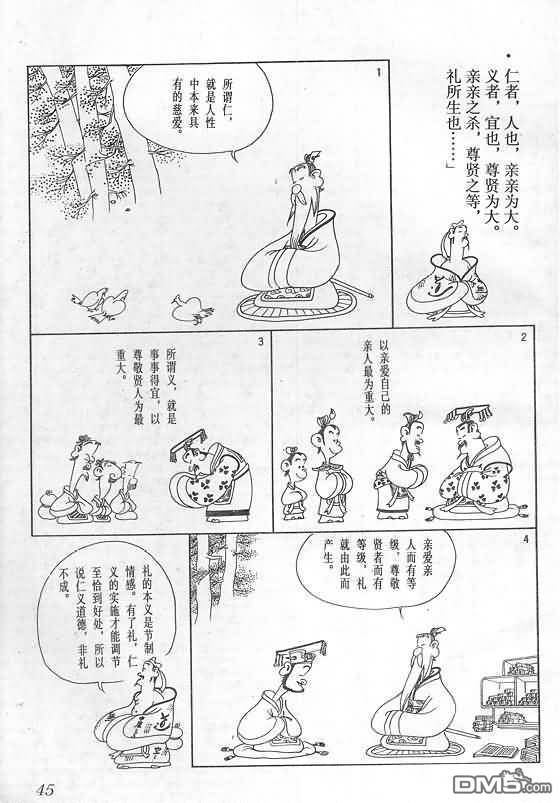 仁者，人也，亲亲为大。
义者，宜也，尊贤为大。
亲亲之杀，尊贤之等，
礼所生也……」
1
所谓仁，
就是人性
中本来具
有的慈爱。
2
以亲爱自己的
亲人最为重大。
3
所谓义，就是
事事得宜，以
尊敬贤人为最
重大。
4
亲爱亲
人而有等
级，尊敬
贤者而有
等级，礼
就由此而
产生。
礼的本义是节制
情感。有了礼，仁
义的实施才能调节
至恰到好处，所以
说仁义道德，非礼
不成。
道
45
DM5.com